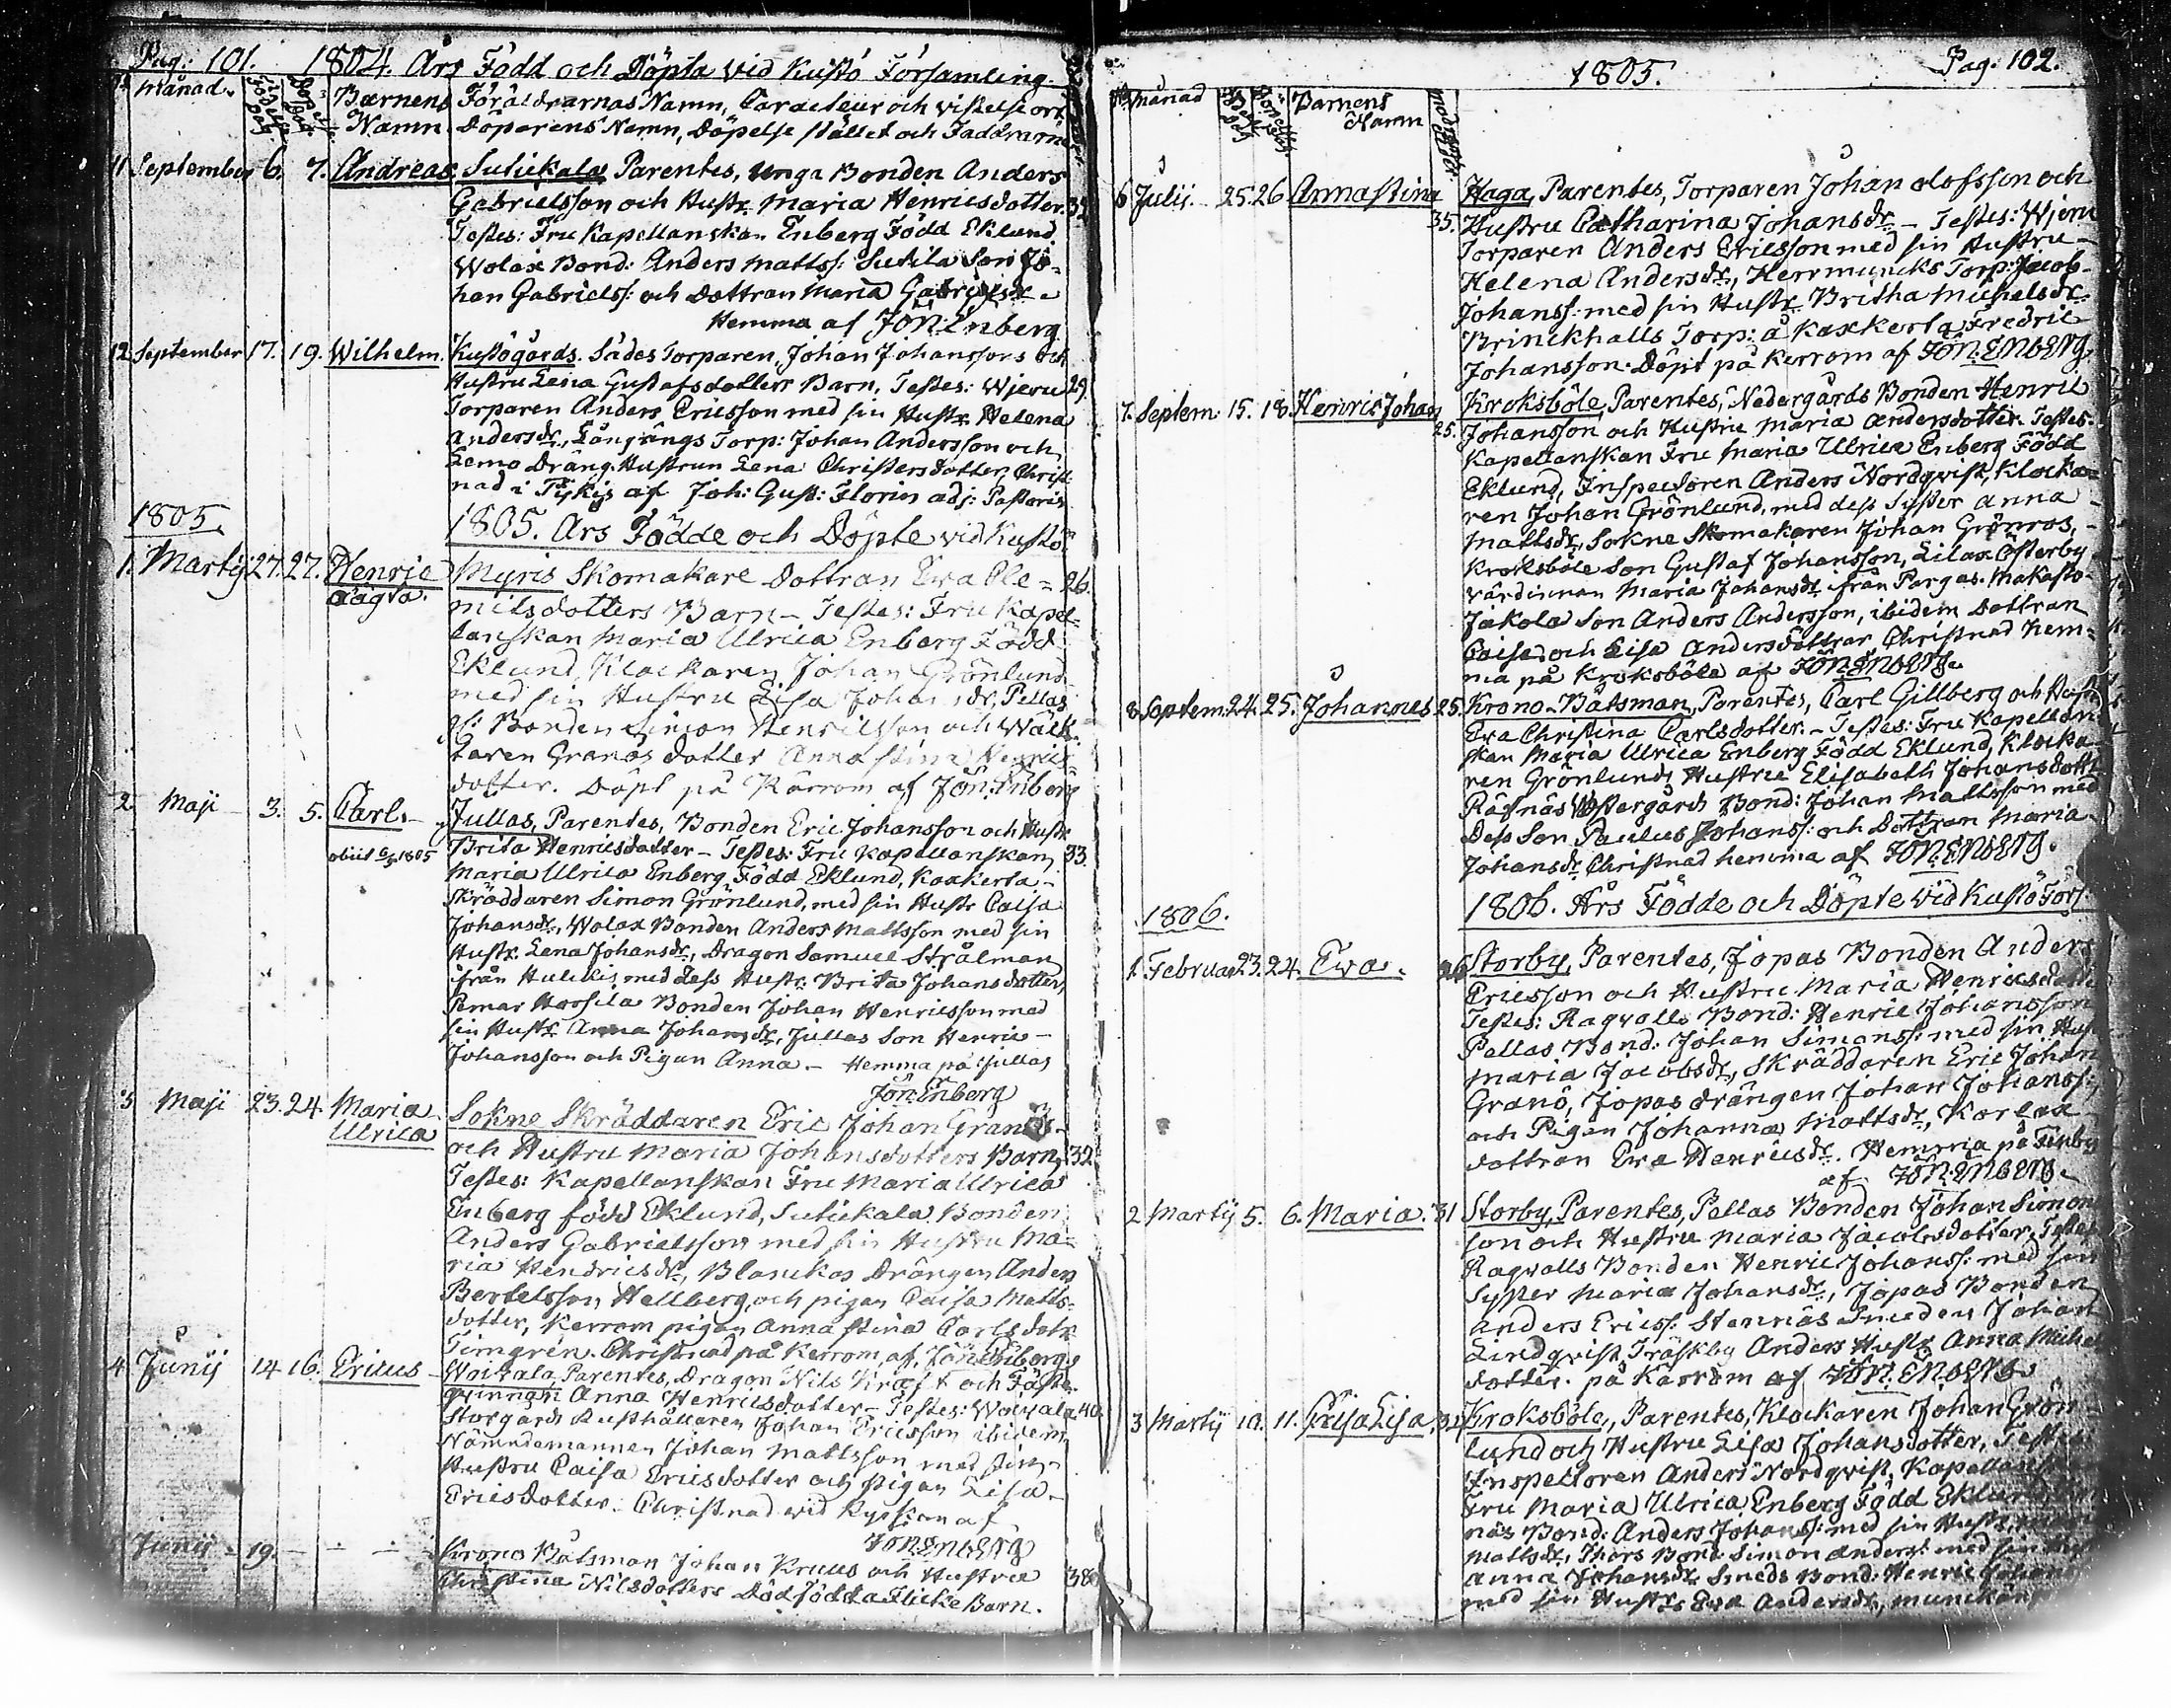 Pag: 101. 1804. Års Född och Döpta vid Kustö Församling.
Månad. Födelse Dag Döpelse Dag Barnens Föräldrarnas Namn, Caracteur och vistelse ort
Namn Döparens Namn, Döpelse stället och Faddrarne
11 September 6. 7. Andreas Sutickala Parentes, unga Bonden Anders
Gabrielsson och Hustr. Maria Henricsdotter.
Testes: Fru Kapellanskan Enberg Född Eklund
Wolax Bond: Anders Matts: Sutila Son Jo-
han Gabriels: och Dottran Maria Gabrielsdr.
Hemma af Jon: Enberg
12 September 17. 19. Wilhelm. Kustögårds. Sädes Torparen, Johan Johanssons och
Hustru Lena Gustafsdotters Barn, Testes: Wjeru 29.
Torparen Anders Ericsson med sin Hustr. Helena
Andersdr, Långängs Torp: Johan Andersson och
Lemo Dräng. Hustrun Lena Christersdotter, Christ-
nad i Pijkis af Joh: Gust: Florin adj: Pastoris
1805. 1805. Års Födde och Döpte vid Kustö
1. Martij 27. 27. Henric Myris Skomakare Dottran Ewa Cle= 26.
oägta. mitsdotters Barn - Testes: Fru Kapel-
lanskan Maria Ulrica Enberg Född
Eklund, Klockaren Johan Grönlund
med sin Hustru Lisa Johansdr, Pellas
Bonden Simon Henricsson och Wäk-
taren Granös dotter Anna Stina Henrics
dotter. Döpt på Kärrom af Jon: Enberg
2. Maji 3. 5. Carl. Jullas, Parentes, Bonden Eric Johansson och Hustr
obiit 1805 Brita Henricsdotter - Testes: Fru Kapellanskan, 33.
Maria Ulrica Enberg Född Eklund, Kaxkerta-
Skräddaren Simon Grönlund, med sin Hustr Caisa
Johansdr, Wolax Bonden Anders Mattsson med sin
Hustr. Lena Johansdr, Dragon Samuel Strålman
ifrån Hulkis, med dess Hustr: Brita Johansdotter,
Pemar Hossila Bonden Johan Henricsson med
sin Hustr. Anna Johansdr, Jullas Son Henric-
Johansson och Pigan Anna. - Hemma på Jullas
Jon: Enberg
3 Maji 23. 24. Maria Sokne Skräddaren Eric Johan Granös
Ulrica och Hustru Maria Johansdotters Barn, 32.
Testes: Kapellanskan Fru Maria Ulrica
Enberg född Eklund, Sutickala Bonden
Anders Gabrielsson med sin Hustru Ma-
ria Hendricsdr, Blanckas Drängen Anders
Bertelsson Hellberg, och pigan Caisa Matts-
dotter, Kerrom pigan Anna Stina Carlsdotr
Timgrén. Christnad på Kerrom, af Jon: Enberg
4. Junij 14 16. Ericus - Woivala, Parentes, Dragon Nils Kraft och Fäste-
qvinnan Anna Henricsdotter - Testes: Woivala 40.
Storgårds Rusthållaren Johan Ericsson ibidem
Nämndemannen Johan Mattsson med sin
Hustru Caisa Ericsdotter och Pigan Lisa
Ericsdotter. Christnad vid Kyrkan af
Jon: Enberg
Junij - 19. - - - Krono Båtsman Johan Kruus och Hustru
Christina Nilsdotters Dödfödda Flicke Barn. 38
Pag. 102.
1805.
Månad Barnens
Namn
6 Julij. 25. 26 Anna Stina Haga, Parentes, Torparen Johan Olofsson och
35. Hustru Catharina Johansdr. - Testes: Wjeru
Torparen Anders Ericsson med sin Hustru-
Helena Andersdr, Herrmuncks Torp: Jacob-
Johanss: med sin Hustr. Britha Michelsdr.
Brinckhalls Torp: å Kaxkerta Fredric
Johansson. Döpt på Kerrom af Jon: Enberg
7. Septem: 15. 18. Henric Johan Kroksböle, Parentes, Nedergårds Bonden Henric
25. Johansson och Hustru Maria Andersdotter. Testes.
Kapellanskan Fru Maria Ulrica Enberg Född
Eklund, Inspectoren Anders Nordqvist, Klocka-
ren Johan Grönlund, med dess Syster Anna
Mattsdr, Sokne Skomakaren Johan Grönros,
Kroksböle Son Gustaf Johansson, Lilax Österby
värdinnan Maria Johansdr ifrån Pargas. Makasto-
Jakola Son Anders Andersson, ibidem Dottran
Caisa och Lisa Andersdottrar Christnad hem-
ma på Kroksböle af Jon: Enberg
8 Septem. 24. 25. Johannes 25. Krono-Båtsman, Parentes, Carl Gillberg och Hustr
Ewa Christina Carlsdotter. - Testes: Fru Kapellan-
skan Maria Ulrica Enberg Född Eklund, Klocka-
ren Grönlunds Hustru Elisabeth Johansdottr
Räfnäs Westergårds Bond: Johan Mattsson med
Dess Son Paulus Johans: och Dottran Maria
Johansdr Christnad hemma af Jon: Enberg.
1806. 1806. Års Födde och Döpte vid Kustö Förs:
1. Februar 23. 24. Ewa. Storby, Parentes, Jopas Bonden Anders
Ericsson och Hustru Maria Henricsdottr
Testes: Ragvalls Bond: Henric Johansson
Pellas Bond: Johan Simonss: med sin Hustr
Maria Jacobsdr, Skräddaren Eric Johan
Granö, Jopas drängen Johan Johanss:
och Pigan Johanna Mattsdr, Korlax
dottran Ewa Henricsdr. Hemma på Finby
af Jon: Enberg.
2 Martij 5. 6. Maria. 31 Storby, Parentes, Pellas Bonden Johan Simon
son och Hustru Maria Jacobsdotter, Testes
Ragvalls Bonden Henric Johanss: med sin
Syster Maria Johansdr, Jopas Bonden
Anders Ericss: Stennäs Smeden Johan
Lindqvist, Träskby Anders Hustr Anna Michels
dotter. på Kärrom af Jon: Enberg
3 Martij 10. 11. Caisa Lisa, Kroksböle, Parentes, Klockaren Johan Grön-
lund och Hustru Lisa Johansdotter, Testes
Inspectoren Anders Nordqvist, Kapellans
Fru Maria Ulrica Enberg Född Eklund
näs Bond: Anders Johanss: med sin Hustr
Mattsdr, Thors Bond: Simon Anderss: med sin
Anna Johansdr Smeds Bond: Henric Johan
med sin Hustr. Ewa Andersdr,